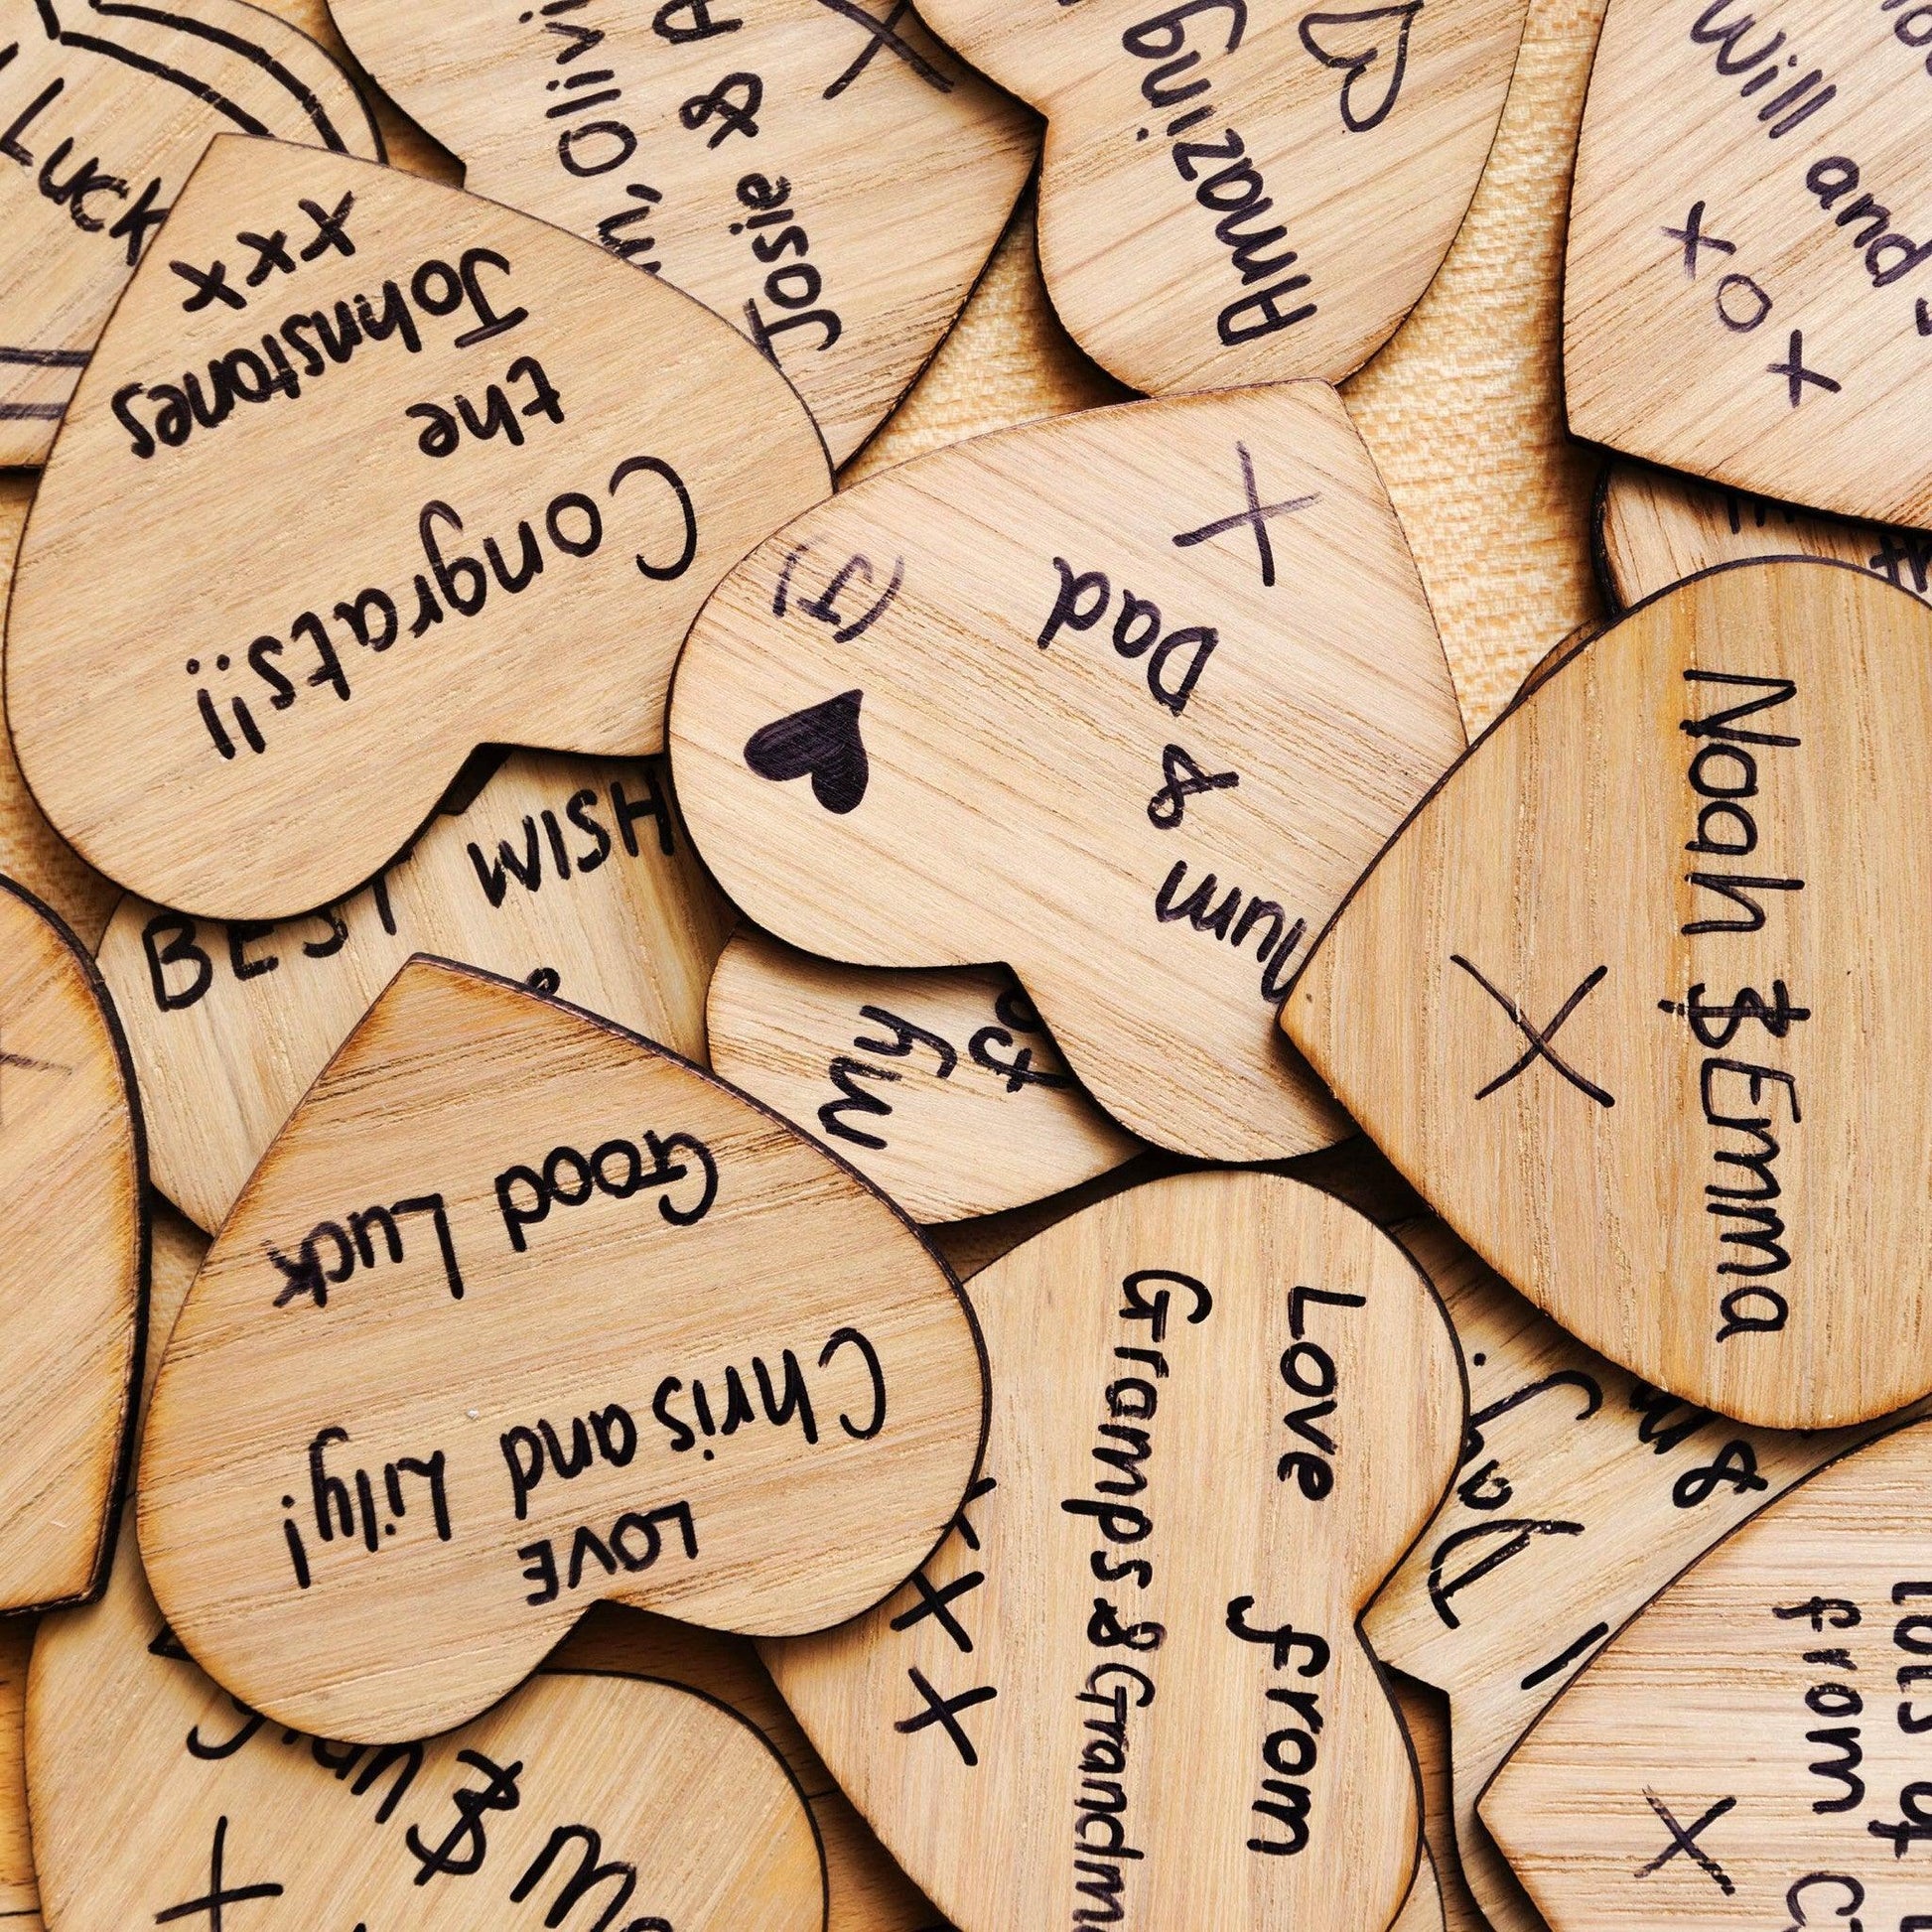 Luck
Olivi
Josie & A
Amazing
Will and
xox
Congrats!!
the
Johnstones
xxx
X
Mum & Dad
(J)
BEST WISH
My
Noah & Emma
X
Good Luck
Chris and Lily!
LOVE
Love from
Gramps & Grandm
XXX
Dad
&
from
X
&
X